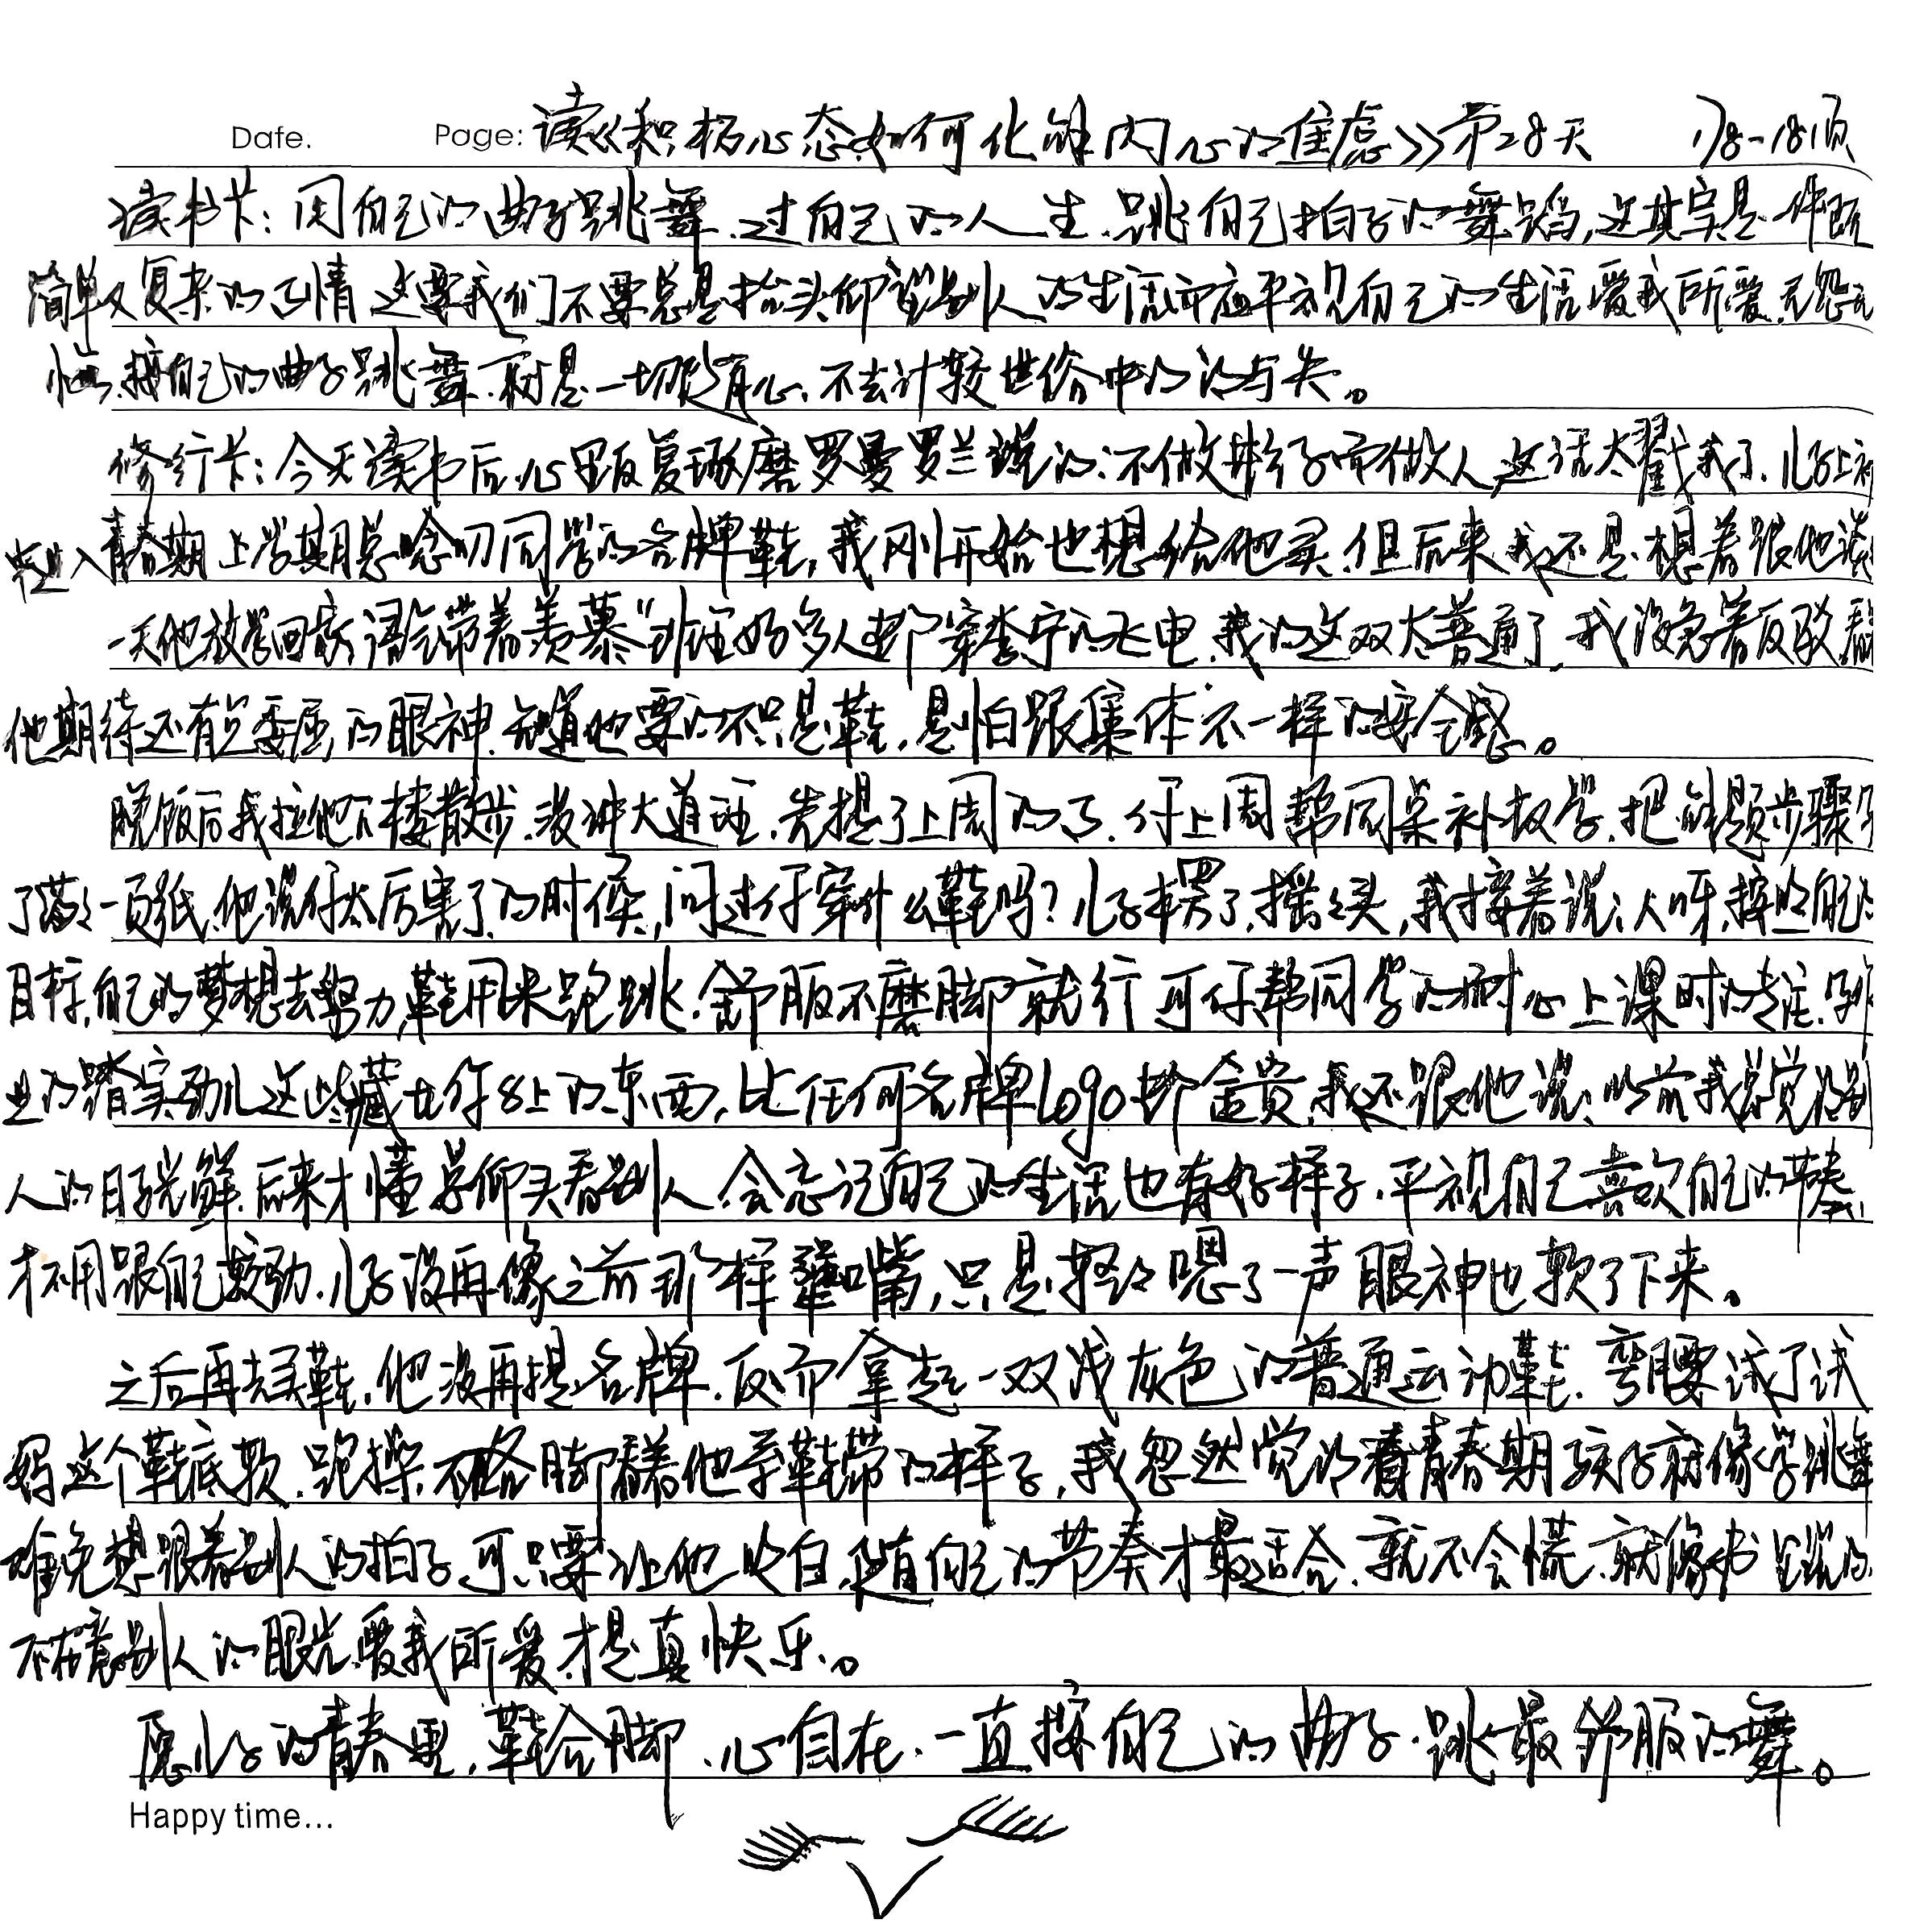 Date. Page: 读《积极心态如何化解内心的焦虑》第28天 178-181页
读书卡：用自己的曲子跳舞.过自己的人生.跳自己拍子的舞蹈,这其实是一件既
简单又复杂的事情 这要我们不要总是抬头仰望别人的生活而应平视自己的生活.爱我所爱.无怨无
悔.按自己的曲子跳舞.就是一切随心.不去计较世俗中的得与失。
修行卡：今天读书后.心里反复琢磨罗曼罗兰说的:不做影子而做人 这话太戳我了.儿子上初
中进入青春期 上学期总念叨同学的名牌鞋,我刚开始也想给他买.但后来我还是想着跟他谈
一天他放学回家语气带着羡慕“班里好多人都穿李宁的飞电.我的这双太普通了.我没急着反驳.看着
他期待还有点委屈的眼神.知道他要的不只是鞋,是怕跟集体不一样的安全感。
晚饭后我拉他下楼散步.没讲大道理.先提了上周的事.你上周帮同桌补数学.把解题步骤写
了满满一页纸.他说你太厉害了的时候,问过你穿什么鞋吗?儿子楞了摇摇头,我接着说:人呀.按照自己的
目标,自己的梦想去努力,鞋用来跑跳.舒服不磨脚就行 可你帮同学的耐心上课时的专注.写作
业的踏实劲儿这些藏在你身上的东西,比任何名牌logo都金贵,我还跟他说:以前我总觉得别
人的日子光鲜.后来才懂总仰头看别人.会忘记自己的生活也有好样子.平视自己喜欢自己的节奏,
才不用跟自己较劲.儿子没再像之前那样撅嘴,只是轻轻嗯了一声眼神也软了下来。
之后再去买鞋.他没再提名牌.反而拿起一双浅灰色的普通运动鞋.弯腰试了试
妈这个鞋底软.跑操不硌脚看着他系鞋带的样子,我忽然觉得青春期孩子就像学跳舞
难免想跟着别人的拍子.可只要让他明白.随自己的节奏才最适合.就不会慌.就像书里说的
不在意别人的眼光.爱我所爱.才是真快乐。
愿儿子的青春里,鞋合脚.心自在.一直按自己的曲子.跳最舒服的舞。
Happy time...